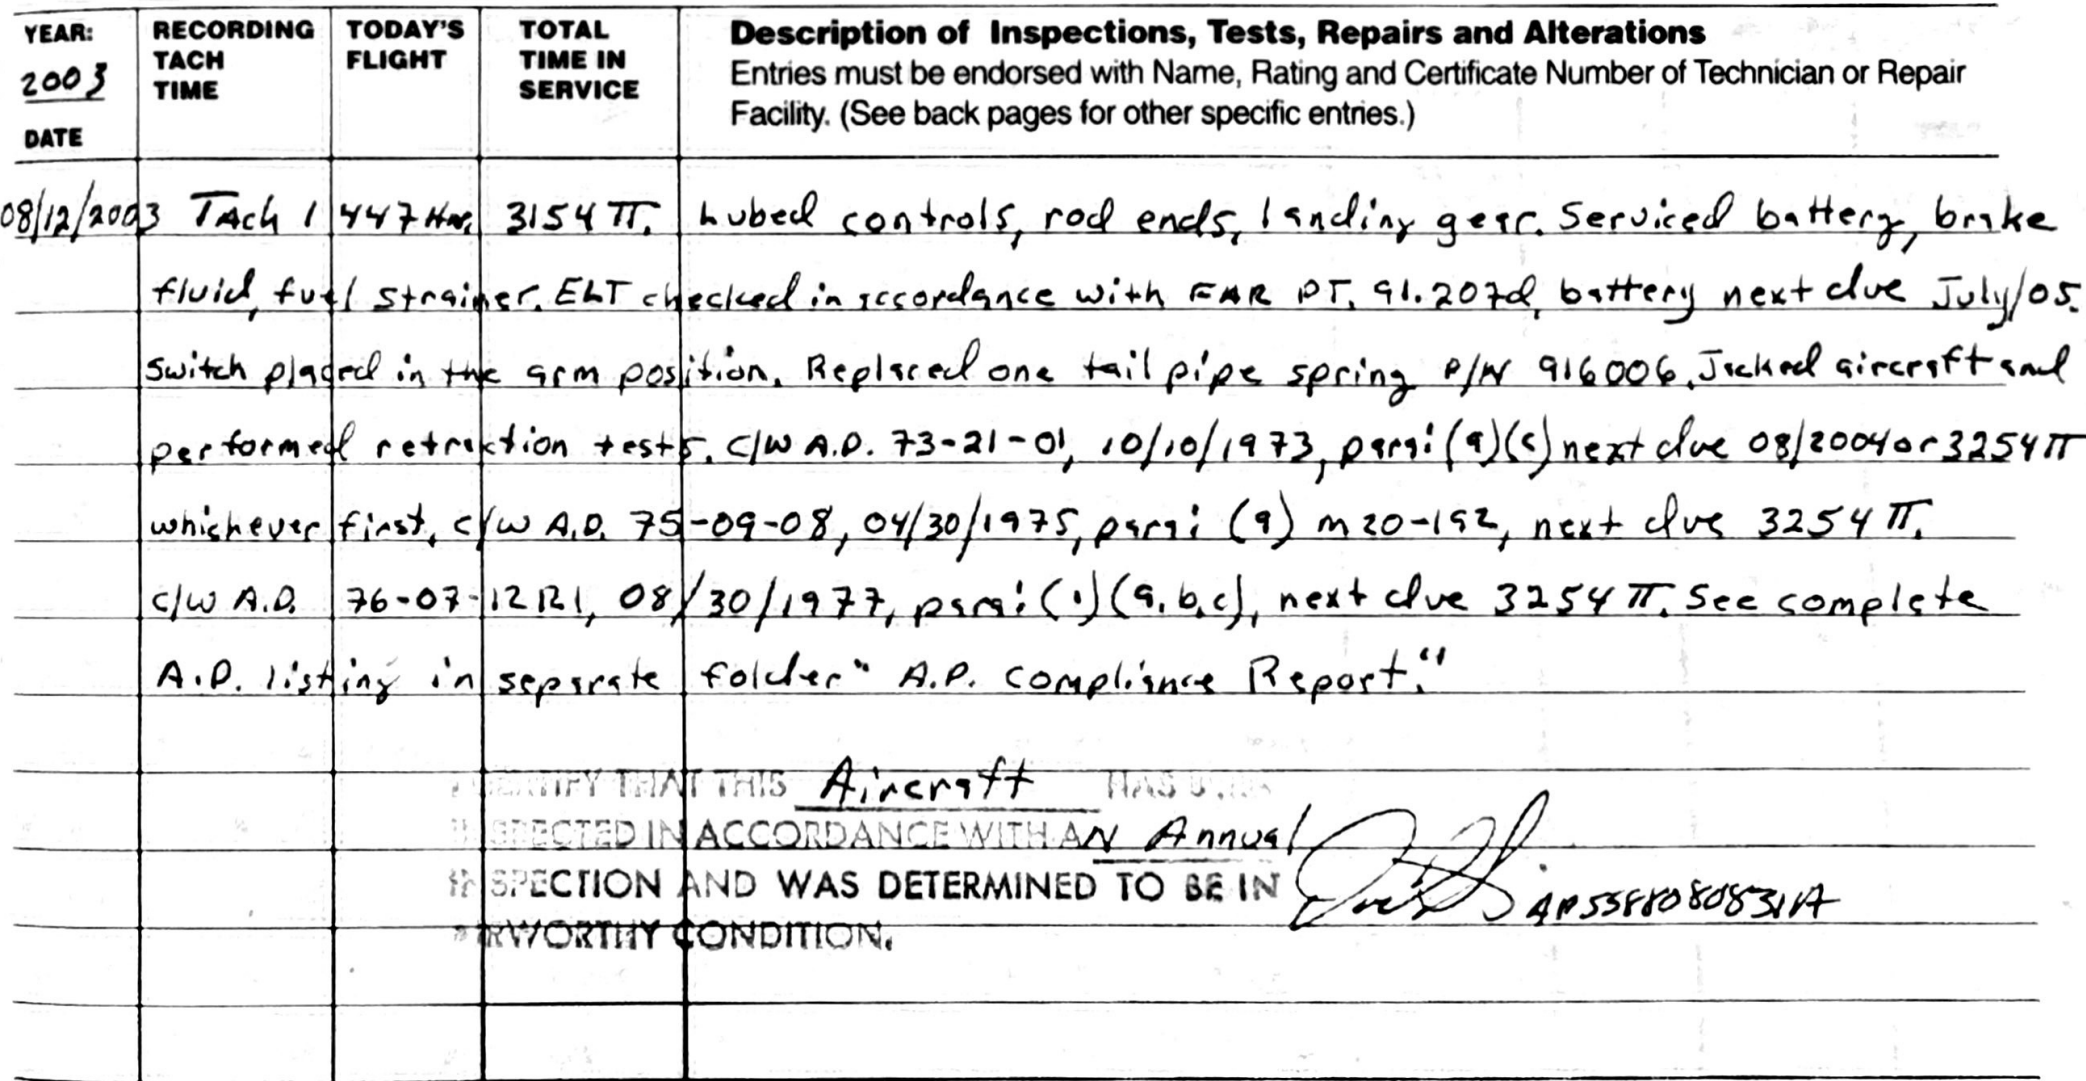 YEAR: 2003 DATE
RECORDING TACH TIME
TODAY'S FLIGHT
TOTAL TIME IN SERVICE
Description of Inspections, Tests, Repairs and Alterations
Entries must be endorsed with Name, Rating and Certificate Number of Technician or Repair
Facility. (See back pages for other specific entries.)
08/12/2003 Tach 1447 Hrs. 3154 TT. Lubed controls, rod ends, landing gear. Serviced battery, brake
fluid, fuel strainer. ELT checked in accordance with FAR PT. 91.207d, battery next due July/05.
switch placed in the arm position. Replaced one tail pipe spring P/N 916006. Jacked aircraft and
performed retraction tests. C/W A.D. 73-21-01, 10/10/1973, para: (a)(c) next due 08/2004 or 3254 TT
whichever first. c/w A.D. 75-09-08, 04/30/1975, para: (a) M20-192, next due 3254 TT.
c/w A.D. 76-07-12 R1, 08/30/1977, para: (1)(a,b,c), next due 3254 TT. See complete
A.D. listing in separate folder "A.D. Compliance Report."
CERTIFY THAT THIS Aircraft HAS
INSPECTED IN ACCORDANCE WITH AN Annual
INSPECTION AND WAS DETERMINED TO BE IN
AIRWORTHY CONDITION.